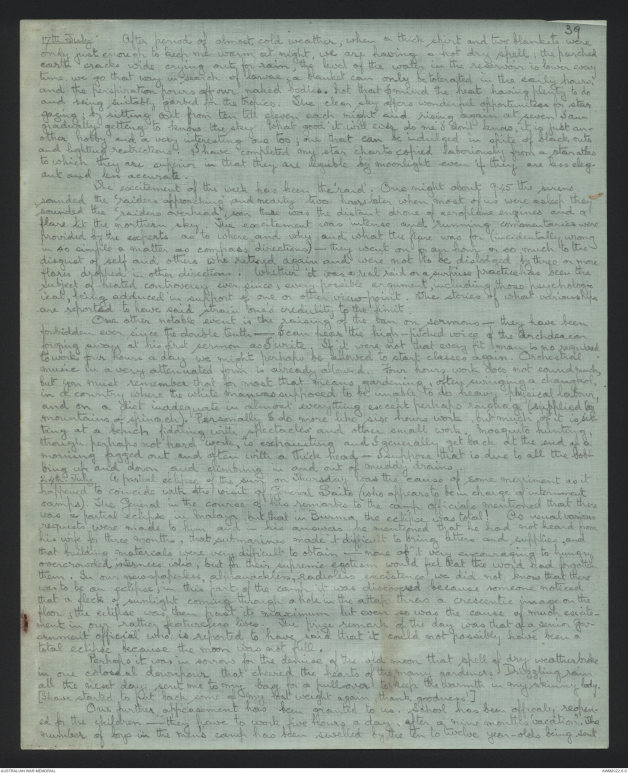 39
17th July. After period of almost cold weather, when a thick shirt and two blankets were
only just enough to keep me warm at night, we are having a hot dry spell; the parched
earth cracks wide crying out for rain, the level of the water in the reservoir is lower every
time we go that way in search of larvae, a blanket can only be tolerated in the early hours
and the perspiration pours off our naked bodies. Not that I mind the heat having plenty to do
and being suitably garbed for the tropics. The clear sky offers wonderful opportunities for star
gazing; by sitting out from ten till eleven each night and rising again at seven I am
gradually getting to know the sky. What good it will ever do me I don't know, it is just an-
other hobby and a very interesting one too; one that can be indulged in spite of black outs
and lighting restrictions. I have completed my star charts copied laboriously from a star atlas
to which they are superior in that they are legible by moonlight even if they are less eleg-
ant and less accurate.
The excitement of the week has been the raid. One night about 9.45 the sirens
sounded the "raiders approaching" and nearly two hours later when most of us were asleep they
sounded the "raiders overhead"; soon there was the distant drone of aeroplane engines and a
flare lit the northern sky. The excitement was intense and running commentaries were
provided by the experts as to where and why and what the flare was for (incidentally wrong
in so simple a matter as compass directions) — they went on for an hour or so much to the
disquiet of self and others who retired again and were not to be dislodged by three or more
flares dropped in other directions. Whether it was a real raid or a surprise practice has been the
subject of heated controversy ever since, every possible argument, including those psycholog-
ical, being adduced in support of one or other view-point. The stories of what various
are reported to have said strain one's credulity to the limit.
One other notable event is the raising of the ban on sermons — they have been
forbidden ever since the double tenth — I can hear the high-pitched voice of the Archdeacon
forging away at his first sermon as I write. If it were not that every fit man is now required
to work four hours a day we might perhaps be allowed to start classes again. Orchestral
music in a very attenuated form is already allowed. Four hours work does not sound much,
but you must remember that for most that means gardening, often swinging a changkol,
in a country where the white man was supposed to be unable to do heavy physical labour,
and on a diet inadequate in almost everything except perhaps roughage (supplied by
mountains of spinach). Personally I do more like six hours work, but much of it is sit-
ting at a bench fiddling with spectacles and other small work; mosquito hunting,
though perhaps not hard work, is exhausting and I generally get back at the end of a
morning fagged out and often with a thick head — I suppose that is due to all the bob-
bing up and down and climbing in and out of muddy drains.
24th July. A partial eclipse of the sun on Thursday was the cause of some merriment as it
happened to coincide with the visit of General Saito (who appears to be in charge of internment
camps). The General in the course of his remarks to the camp officials mentioned that there
was a partial eclipse in Malaya but that in Burma, the eclipse was total! As usual various
requests were made to him and in his answers he mentioned that he had not heard from
his wife for three months, that submarines made it difficult to bring letters and supplies, and
that building materials were very difficult to obtain — none of it very encouraging to hungry
overcrowded internees who, but for their supreme egotism would feel that the world had forgotten
them. In our newspaperless, almanackless, radioless existence we did not know that there
was to be an eclipse; in this part of the camp it was discovered because someone noticed
that a fleck of sunlight coming through a hole in the attap threw a crescentic image on the
floor; the eclipse was then past its maximum but even so was the cause of much excite-
ment in our rather featureless lives. The prize remark of the day was that of a senior gov-
ernment official who is reported to have said that it could not possibly have been a
total eclipse because the moon was not full.
Perhaps it was in sorrow for the demise of the old moon that spell of dry weather broke
in one colossal downpour that cheered the hearts of the many gardeners. Drizzling rain
all the next day sent me to my bag for a pullover to keep the warmth in my skinny body.
[I have started to put back some of my lost weight again thank goodness]
One further appeasement has been granted to us; school has been officially reopen-
ed for the children — they have to work five hours a day after a nine months vacation. The
number of boys in the men's camp has been swelled by the ten to twelve year-olds being sent
AUSTRALIAN WAR MEMORIAL